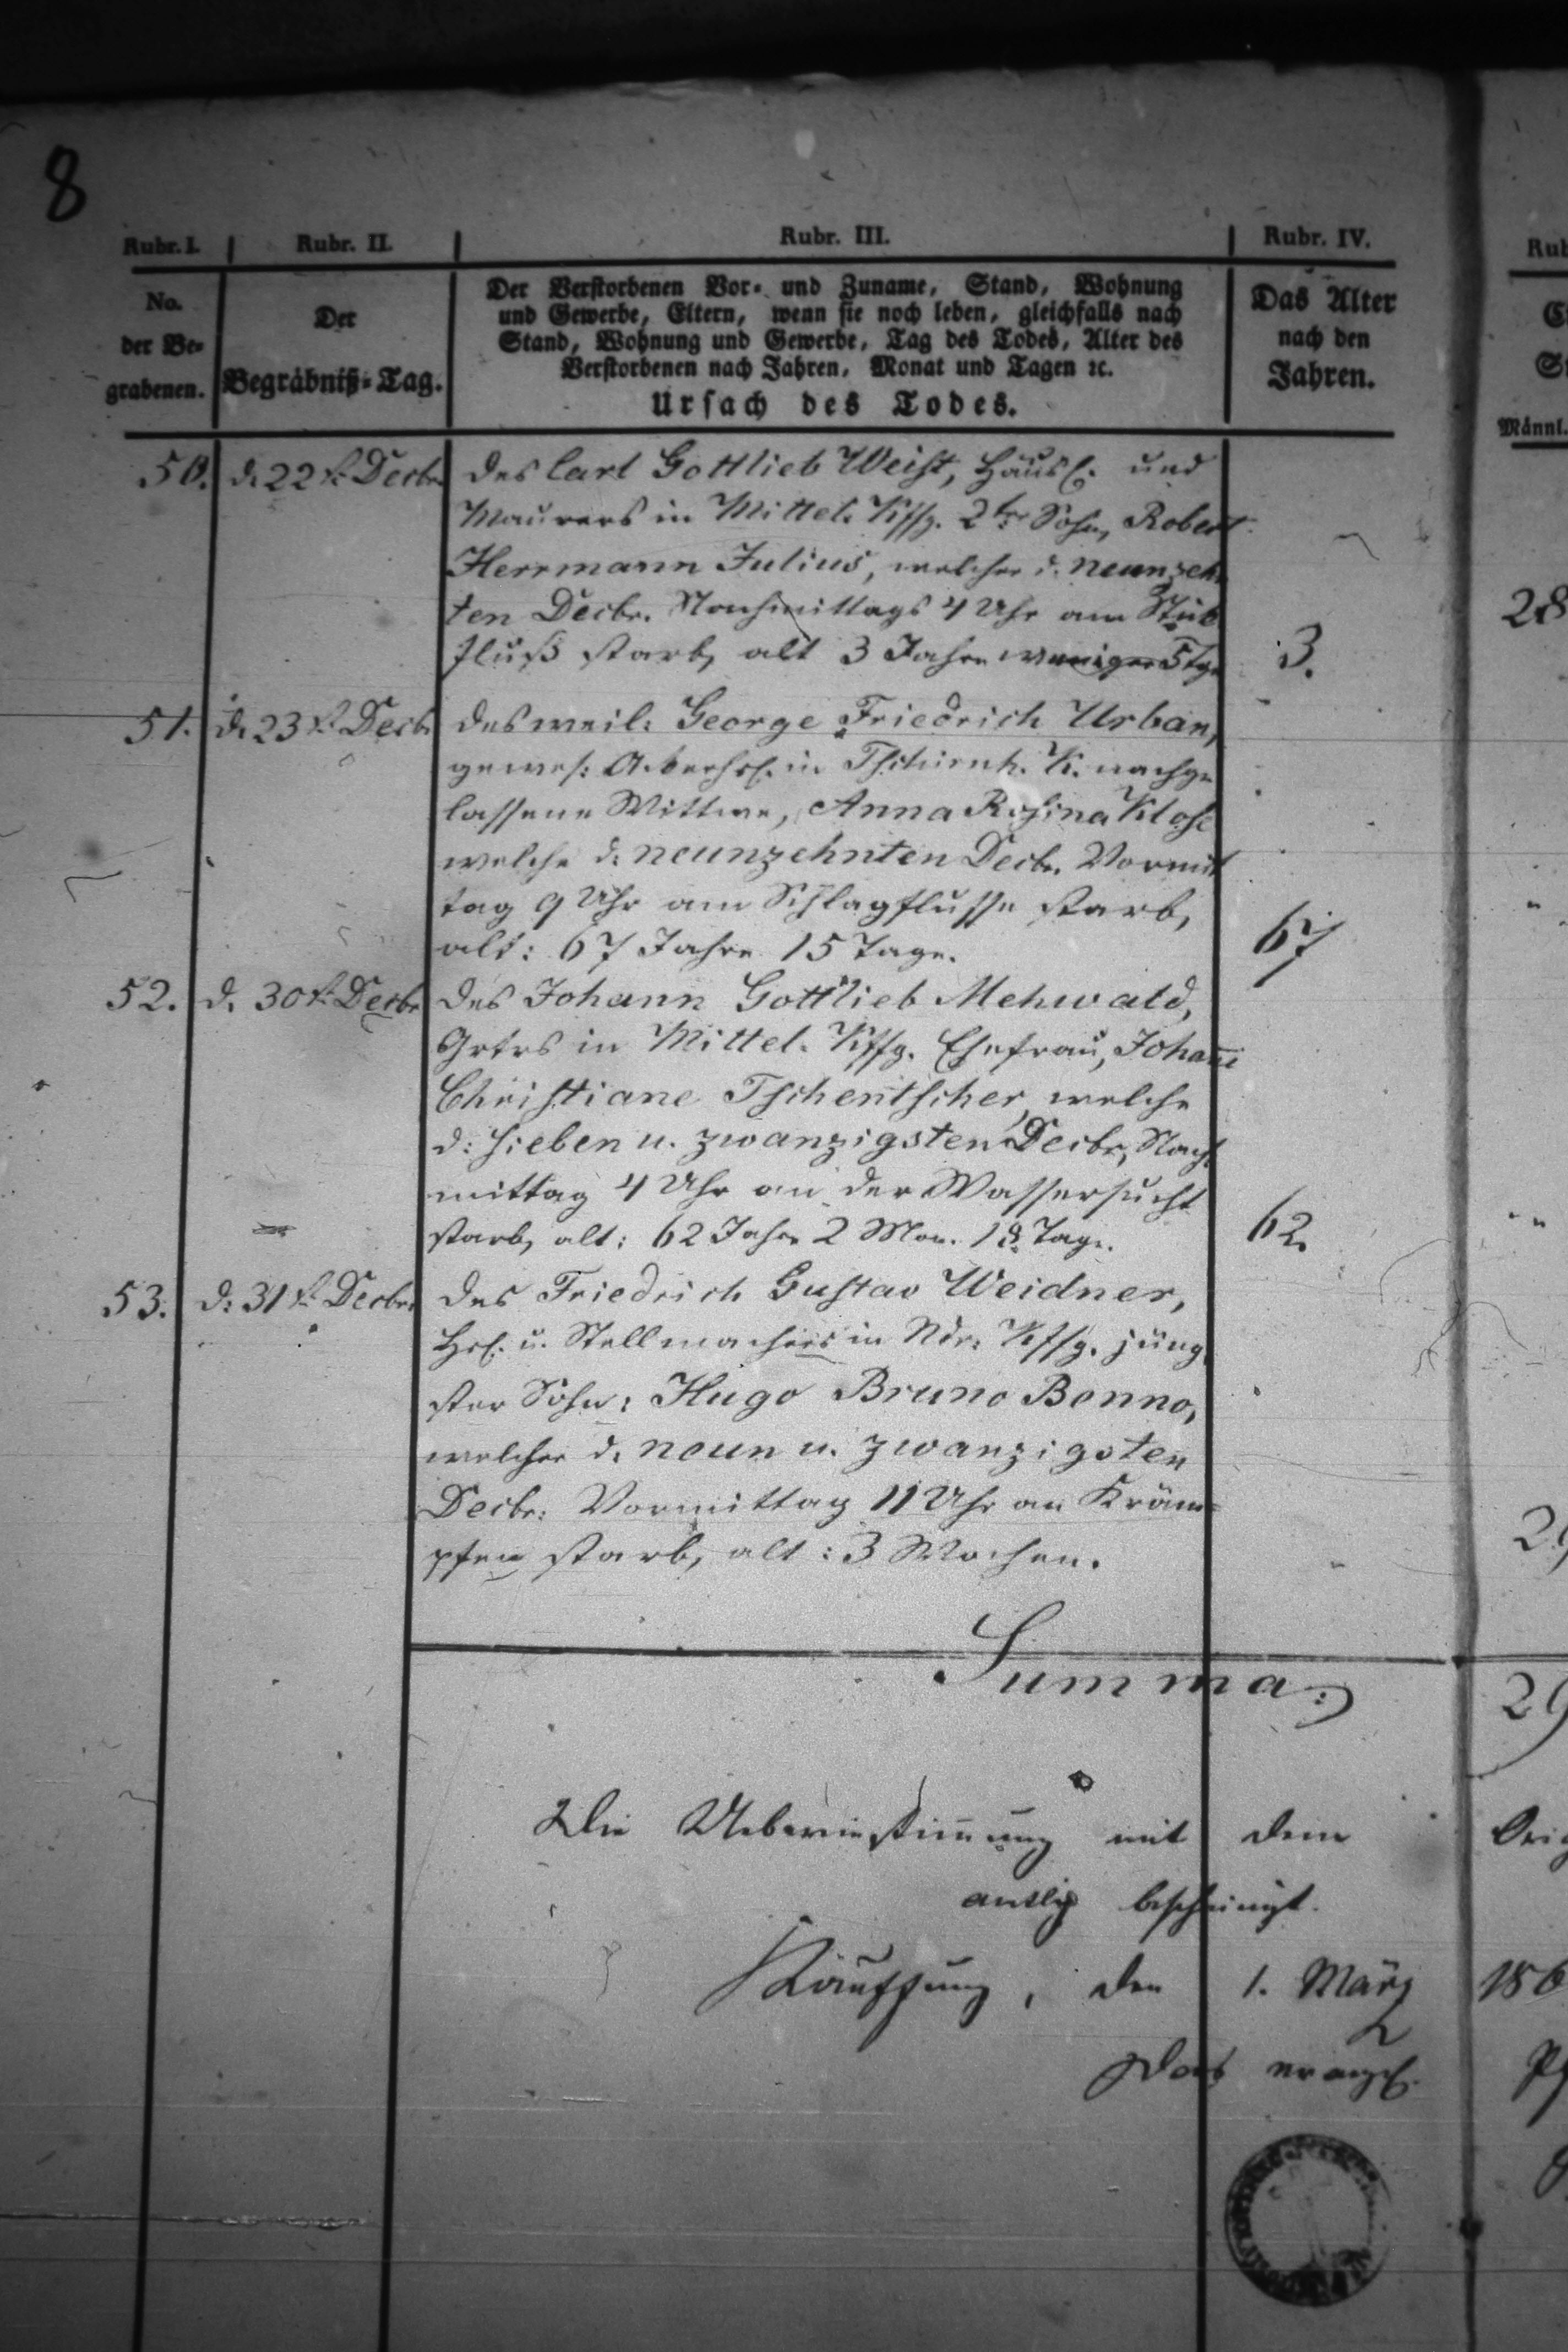 8
Rubr. I. Rubr. II. Rubr. III. Rubr. IV. Rub
No. der Be- grabenen.
Der Begräbniß-Tag.
Der Verstorbenen Vor- und Zuname, Stand, Wohnung
und Gewerbe, Eltern, wenn sie noch leben, gleichfalls nach
Stand, Wohnung und Gewerbe, Tag des Todes, Alter des
Verstorbenen nach Jahren, Monat und Tagen ꝛc.
Ursach des Todes.
Das Alter
nach den
Jahren.
Männl.
50. d. 22t. Decbr. des Carl Gottlieb Weist, Häusl. und
Maurers in Mittel. Kffg. 2tr. Sohn, Robert
Herrmann Julius, welcher d. neunzehn
ten Decbr. Nachmittags 4 Uhr am 28
fluß starb, alt 3 Jahre weniger 5 Tg. 3.
51. d. 23t. Decb. des weil. George Friedrich Urban,
gewes: in Tschirnh. K. nachge
lassene Wittwe, Anna Rosina Klose
welche d. neunzehnten Decbr. Vormit
tag 9 Uhr am Schlagflusse starb,
alt: 67 Jahre 15 Tage. 67
52. d. 30t. Decbr. des Johann Gottlieb Mehwald,
Grtrs in Mittel. Kffg. Ehefrau, Johane
Christiane Tschentscher, welche
d: sieben u. zwanzigsten Decbr, Nach
mittag 4 Uhr an der Wassersucht
starb, alt: 62 Jahre 2 Mon. 18 Tage. 62.
53. d: 31t. Decbr. des Friedrich Gustav Weidner,
Hsl. u. Stellmachers in Ndr. Kffg. jüng
ster Sohn: Hugo Bruno Benno,
welcher d. neun u. zwanzigsten
Decbr: Vormittag 11 Uhr an Kräm= 29
pfen starb, alt: 3 Wochen.
Summa: 29
Die Uebereinstimmung mit dem Orig
amtlich bescheinigt.
Kauffung, den 1. März 186
Das evangel. Pf